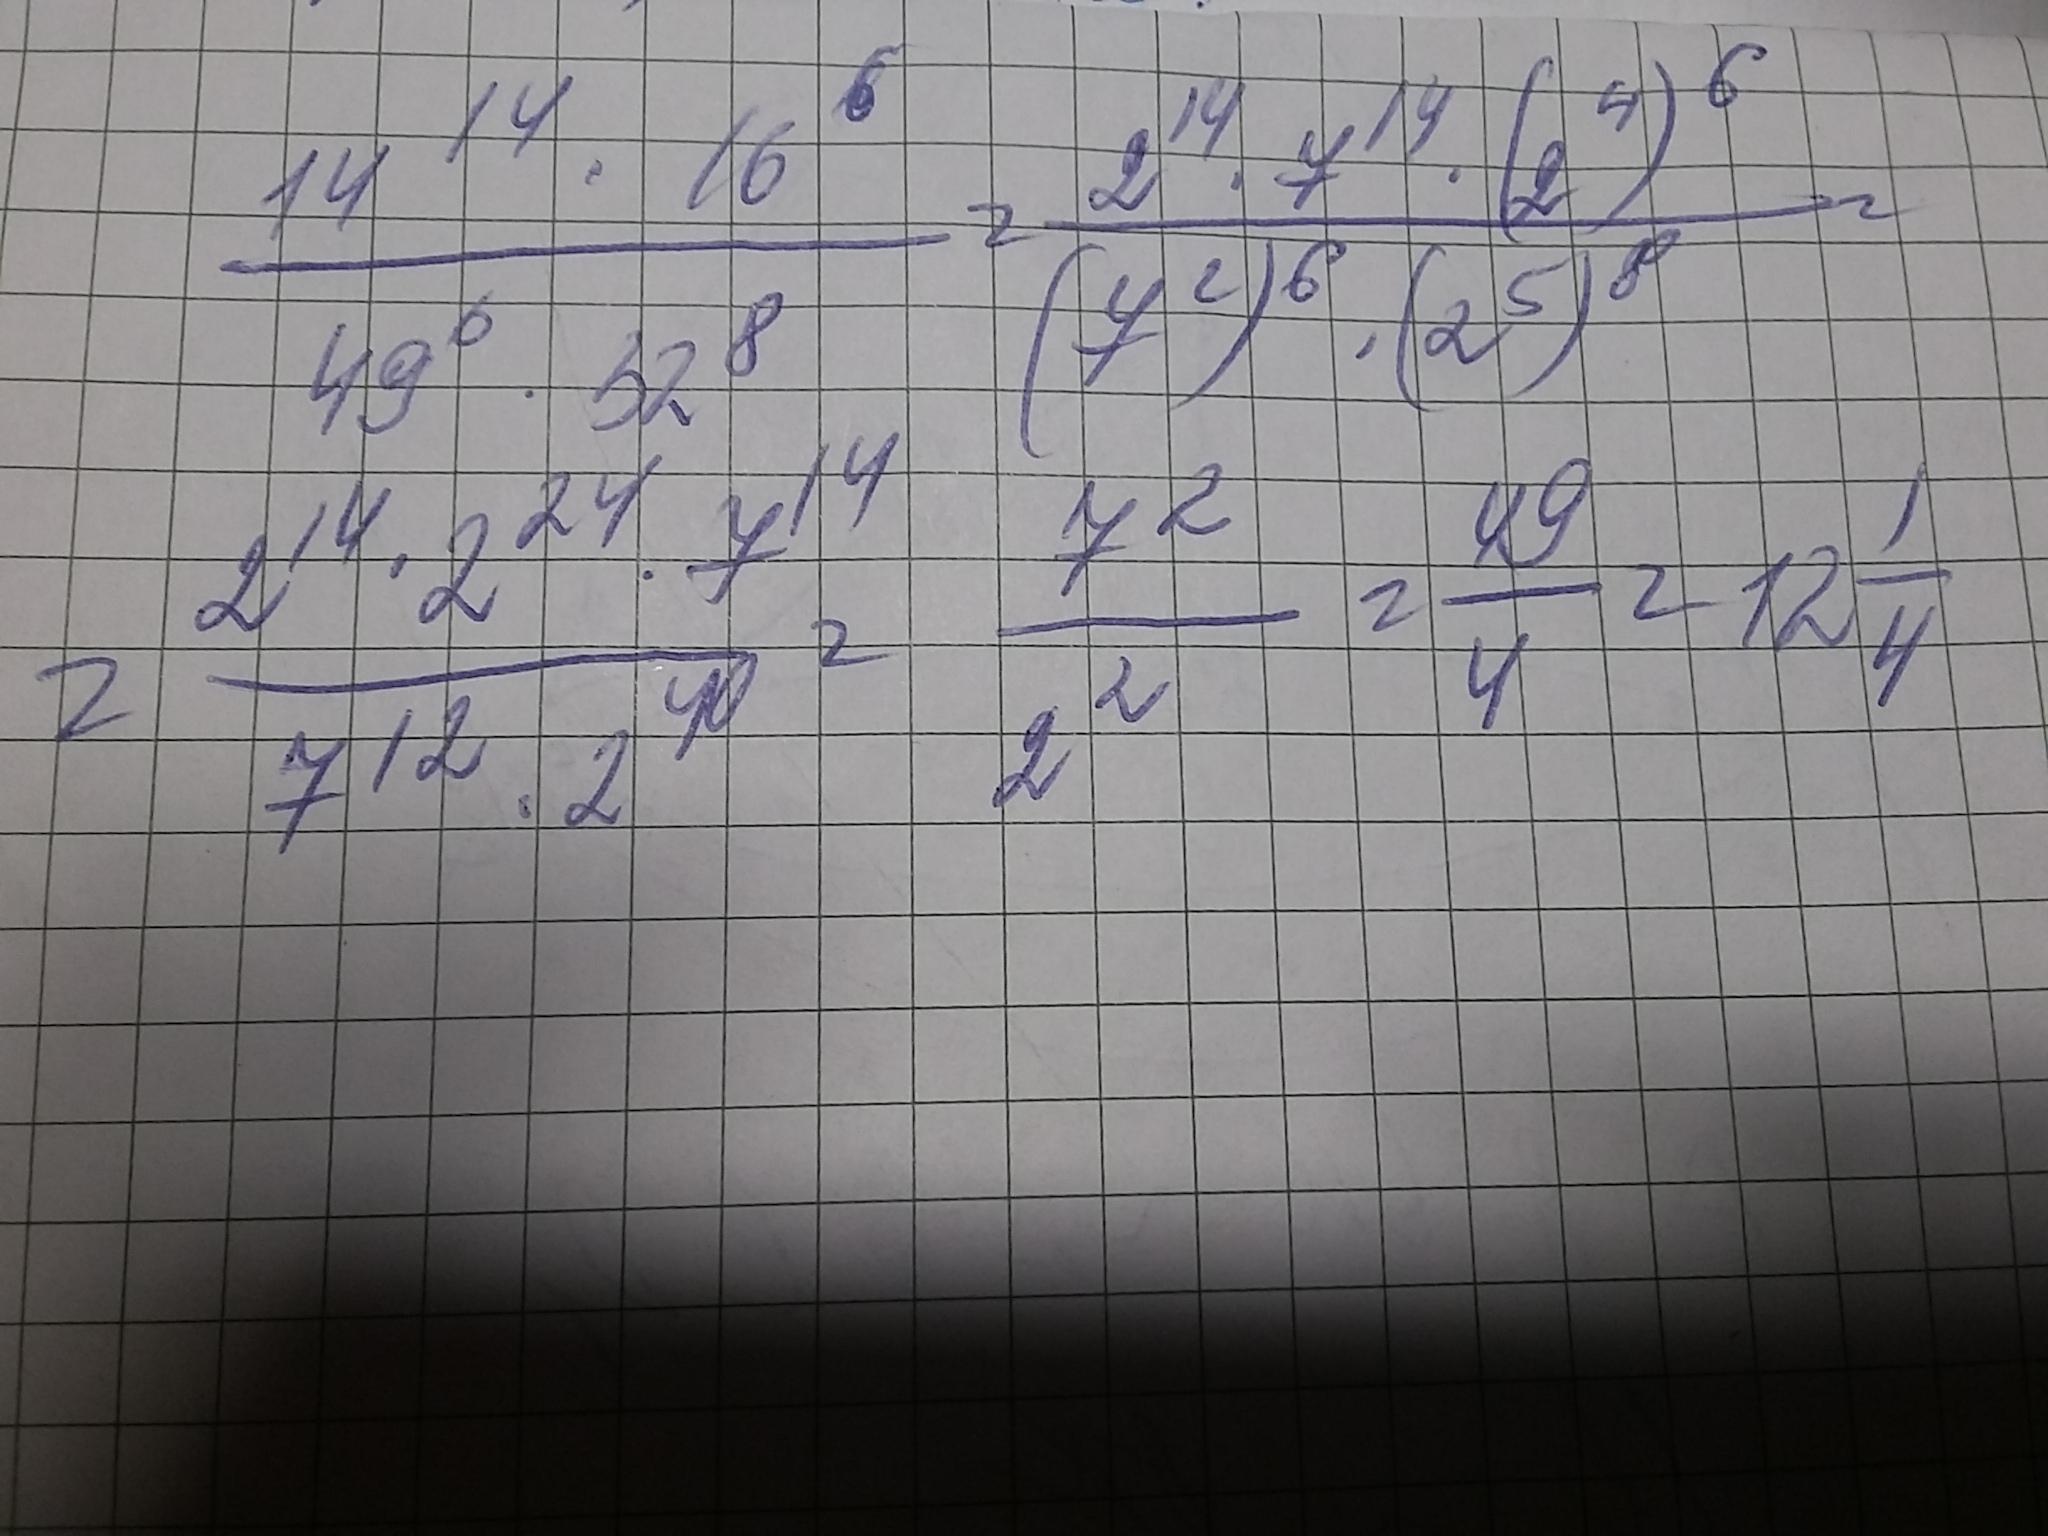 14^14 · 16^6 / 49^6 · 32^8 = 2^14 · 7^14 · (2^4)^6 / (7^2)^6 · (2^5)^8 =
= 2^14 · 2^24 · 7^14 / 7^12 · 2^40 = 7^2 / 2^2 = 49/4 = 12 1/4